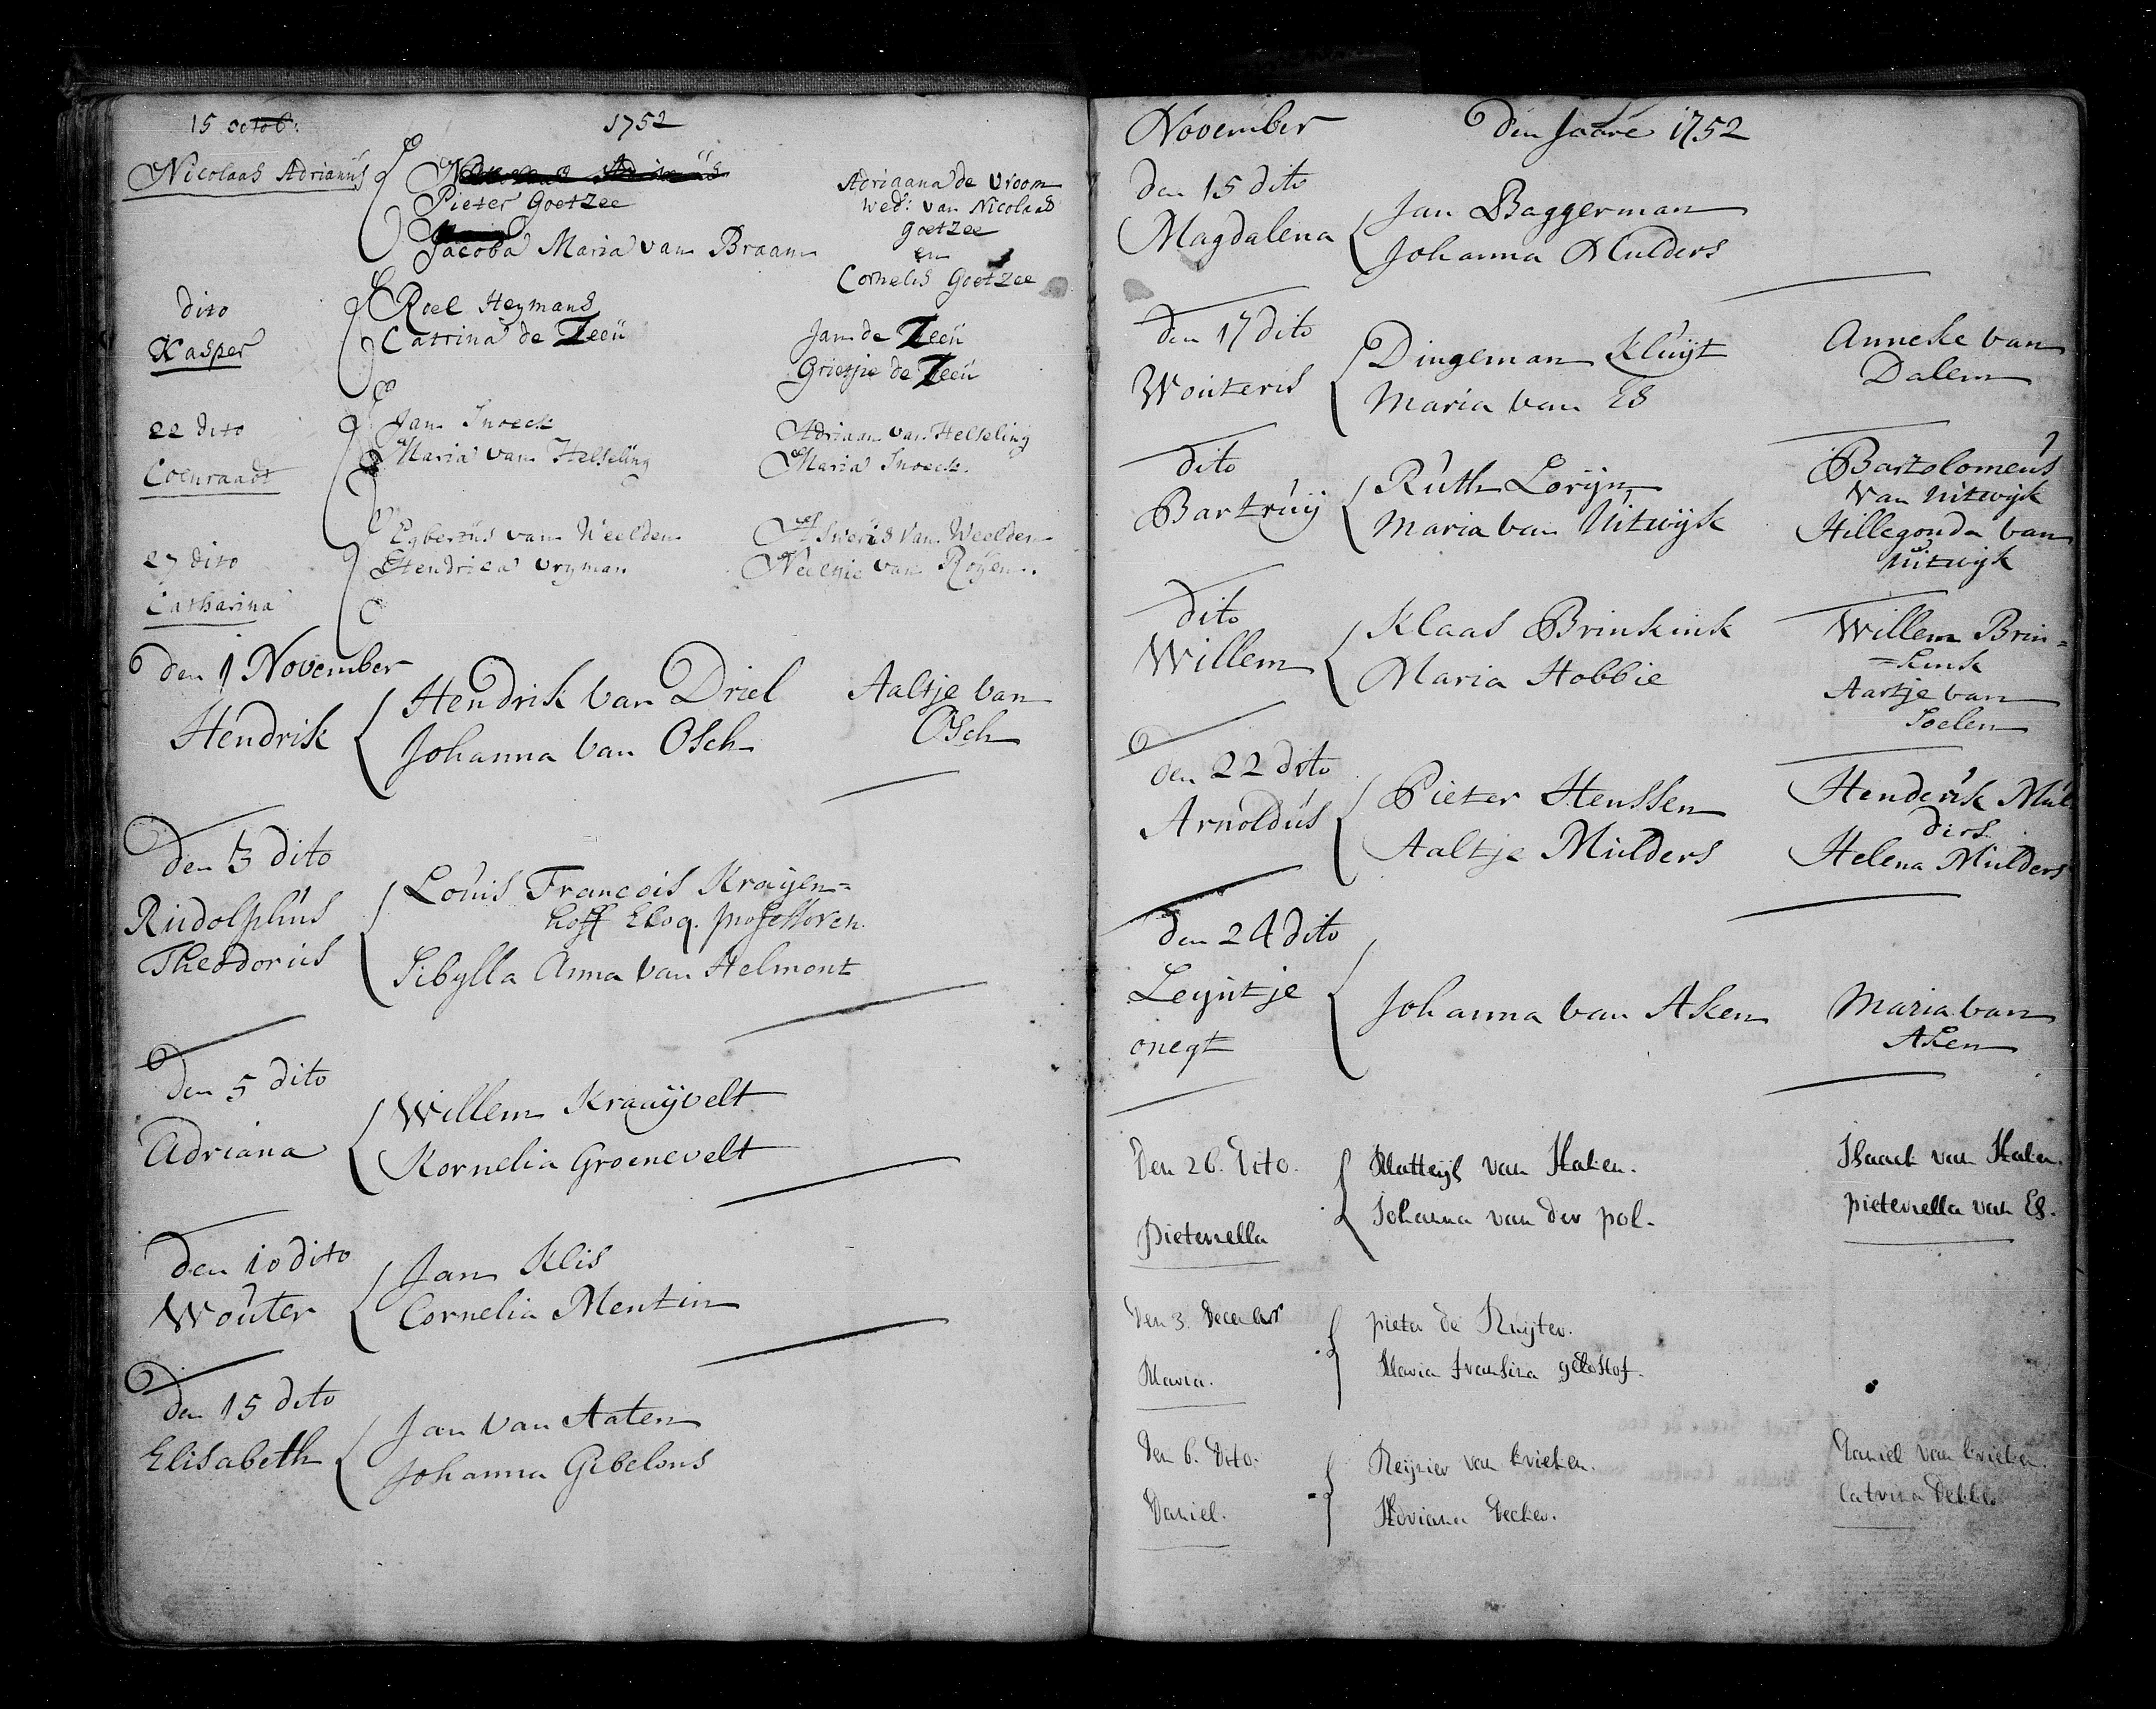 15 octob:
1752
Nicolaas Adrianus
Pieter Goetzee
Jacoba Maria van Braam
Adriaana de Vroom
wed: van Nicolaas
Goetzee
en
Cornelis Goetzee
dito
Kasper
Roel Heymans
Catrina de Zeeü
Jan de Zeeü
Grietjie de Zeeü
22 dito
Coenraadt
Jan Snoeck
Maria van Helseling
Adriaan van Helseling
Maria Snoeck.
27 dito
Catharina
Egbertus van Weelden
Hendrica Vryman
Asweris van Weelden
Neeltjie van Royen.
den 1 November
Hendrik
Hendrik van Driel
Johanna van Osch
Aaltje van
Osch
den 3 dito
Rudolphus
Theodorus
Louis Francois Krayen=
hoff Eloq. professoren
Sibylla Anna van Helmont
den 5 dito
Adriana
Willem Kraayvelt
Kornelia Groenevelt
den 10 dito
Wouter
Jan Klis
Cornelia Mentin
den 15 dito
Elisabeth
Jan van Aaten
Johanna Gibelons
November
den Jaare 1752
den 15 dito
Magdalena
Jan Baggerman
Johanna Mulders
den 17 dito
Wouteris
Dingeman Kluyt
Maria van Es
Anneke van
Dalem
dito
Bartruy
Ruth Loryn
Maria van Uitwyk
Bartolomeus
van Uitwyk
Hillegonda van
Uitwyk
dito
Willem
Klaas Brinkink
Maria Hobbie
Willem Brin=
=kink
Aartje van
Soelen
den 22 dito
Arnoldus
Pieter Henssen
Aaltje Mulders
Henderik Mul
ders
Helena Mulders
den 24 dito
Leyntje
onegt
Johanna van Aken
Maria van
Aken
Den 26. Dito.
pieternella
Mattijs van Haken.
Johanna van der pol.
Isaack van Haken.
pieternella van Es.
Den 3. December
Maria.
pieter de Ruijter.
Maria fransina
Den 6. Dito.
Daniel.
Reijnier van krieken.
Adriana Decker.
Daniel van krieken.
Catrina